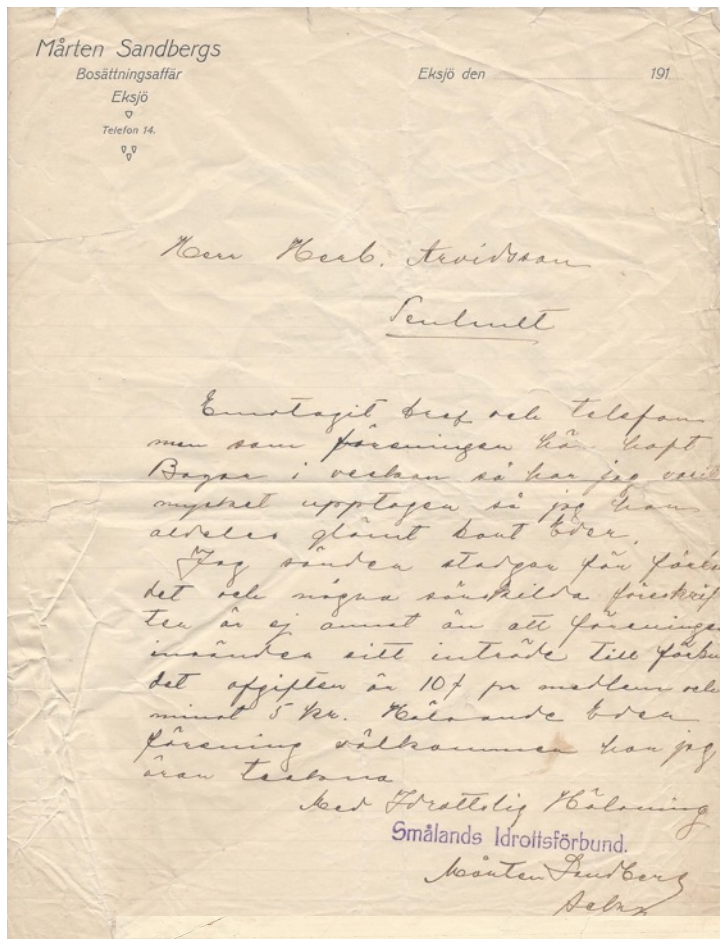 Mårten Sandbergs
Bosättningsaffär
Eksjö
Telefon 14.
Eksjö den 191
Herr Herb. Arvidsson
Emotagit bref och telefon
men som föreningen här haft
Bazar i veckan så har jag varit
mycket upptagen så jag han
aldeles glömt bort Eder.
Jag sänder stadgar för förbu
det och några särskilda föreskrif
ter är ej annat än att föreningen
insänder sitt inträde till förbu
det afgiften är 10 pr medlem och
minst 5 kr. Hälsande Eder
förening välkommen har jag
äran teckna
Med Idrottslig Hälsning
Smålands Idrottsförbund.
Mårten Sandberg